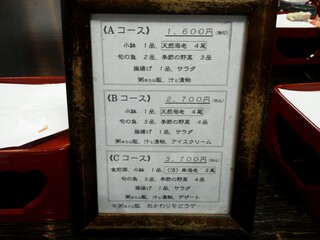 《Aコース》 1,600円(税込)
小鉢 1品、天然海老 4尾
旬の魚 2品、季節の野菜 3品
掻揚げ 1品、サラダ
粥または飯、汁と漬物
《Bコース》 2,700円(税込)
小鉢 1品、天然海老 4尾
旬の魚 3品、季節の野菜 4品
掻揚げ 1品、サラダ
粥または飯、汁と漬物、アイスクリーム
《Cコース》 3,700円(税込)
食前酒、小鉢 1品、(活)車海老 3尾
旬の魚 3品、季節の野菜 4品
掻揚げ 1品、サラダ
粥または飯、汁と漬物、デザート
※粥または飯 おかわりをどうぞ